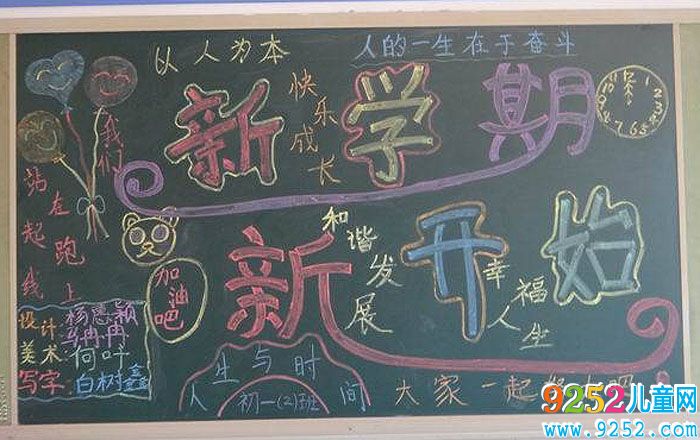 以人为本
人的一生在于奋斗
新学期
快乐成长
我们
站在起跑线上
新开始
和谐发展
幸福人生
加油吧
设计
美术:何叶
写字:白树鑫
人生与时间
初一(2)班
大家一起
9252儿童网
www.9252.com